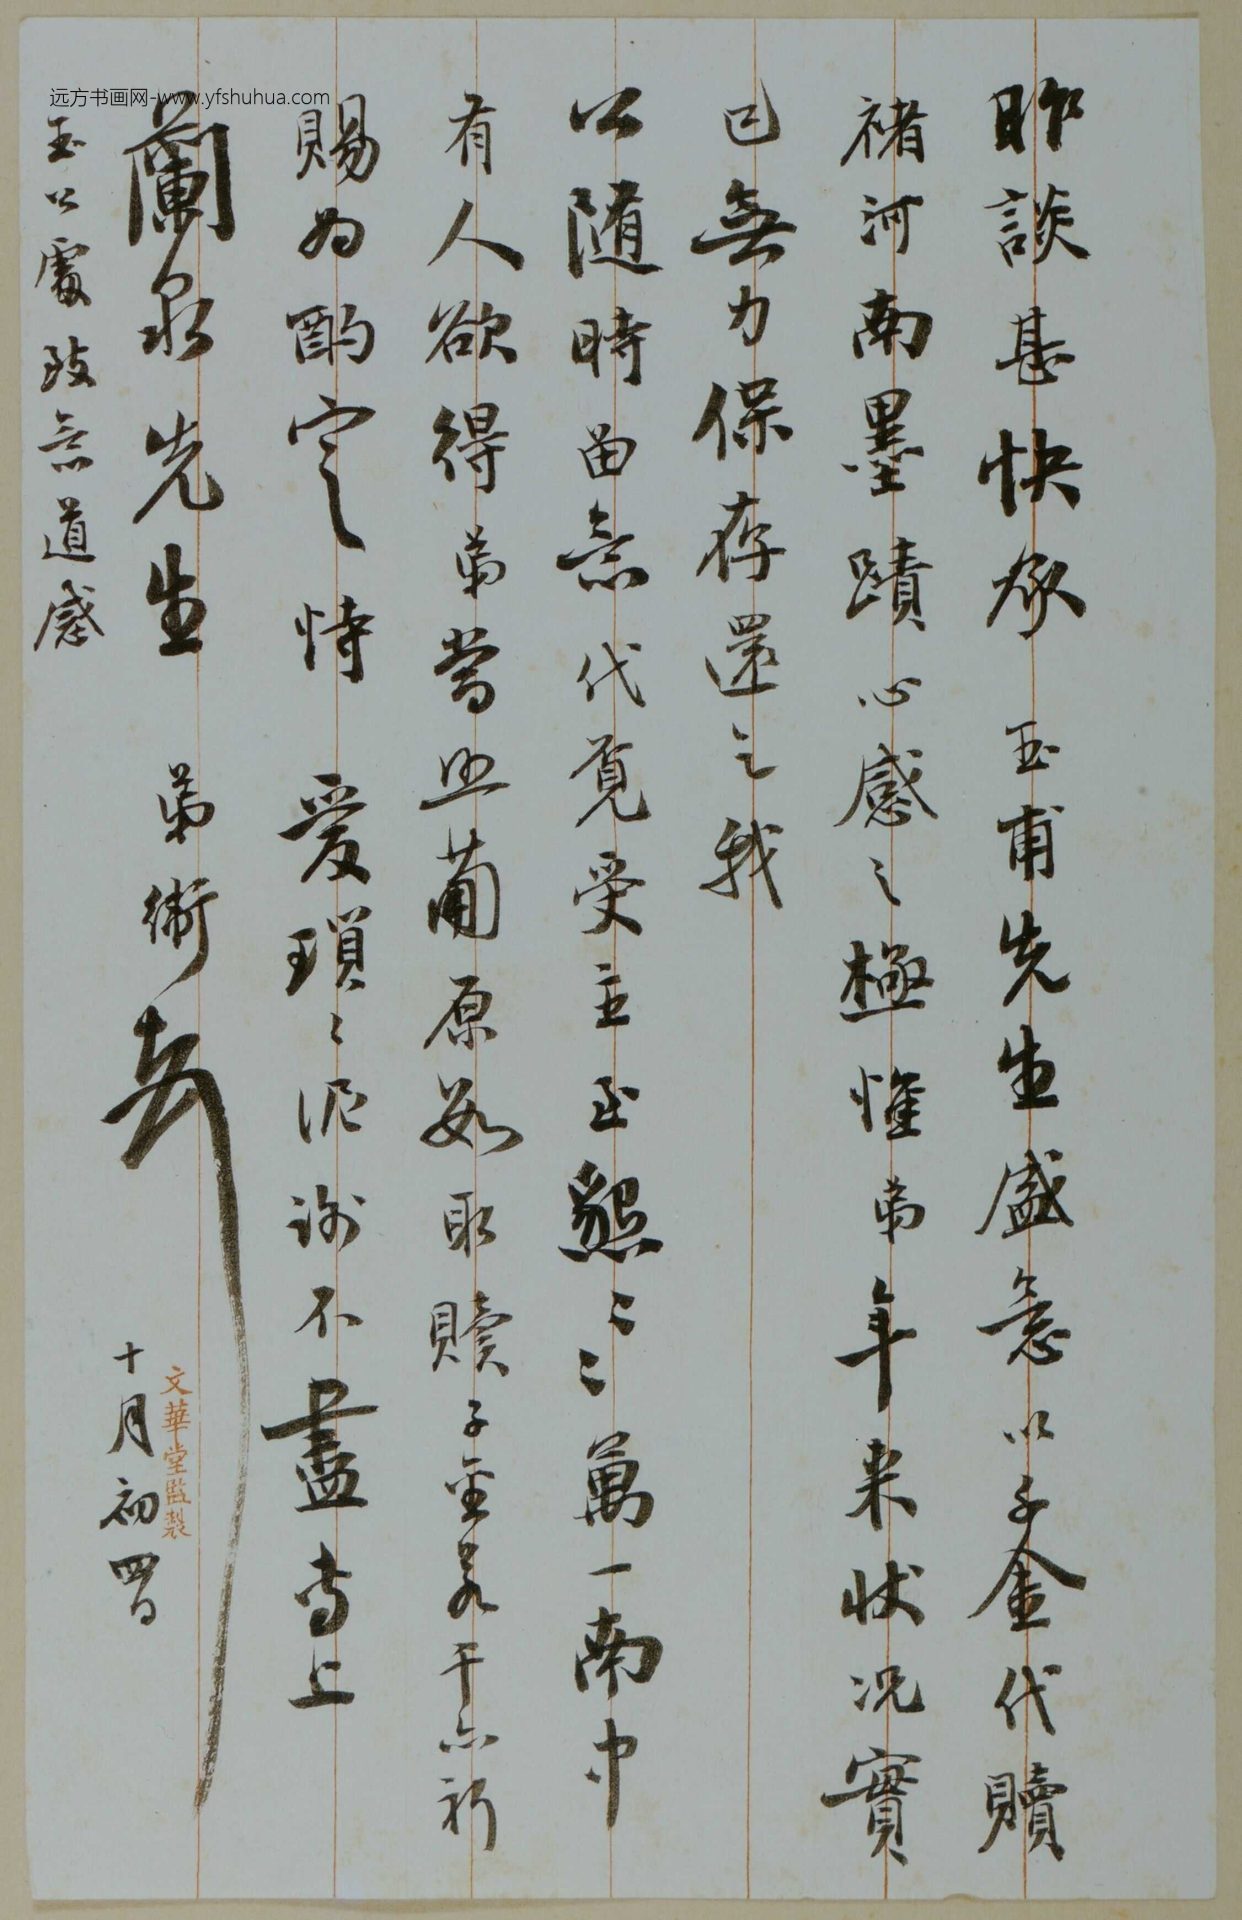 昨談甚快承　玉甫先生盛意以千金代贖
褚河南墨蹟心感之極惟弟年来状况實
已無力保存還之我
公随時留意代覓受主至懇〻〻萬一南中
有人欲得弟當照蘭原如取贖子金若干亦祈
賜為酌定恃　愛瑣〻泥謝不盡專上
蘭泉先生　弟衡
十月初四日
玉公處致意道感
文華堂監製
远方书画网-www.yfshuhua.com